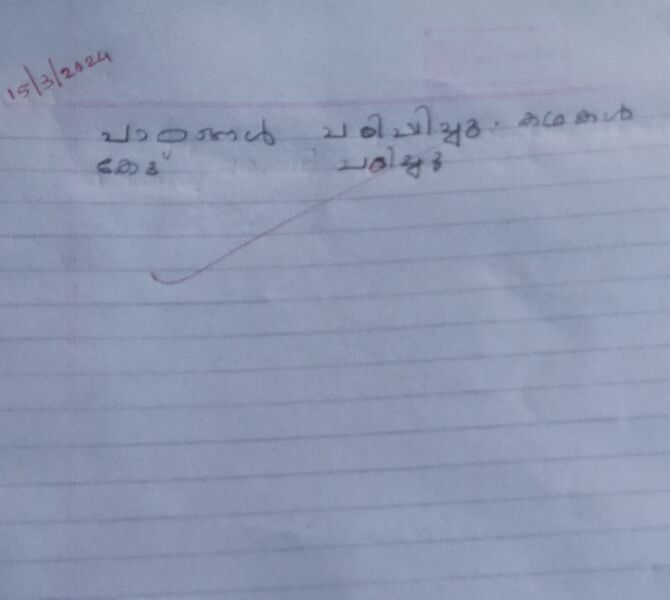 15/3/2024
പാഠങ്ങൾ പഠിപ്പിച്ചു. കഥകൾ
കേട്ട് പഠിച്ചു